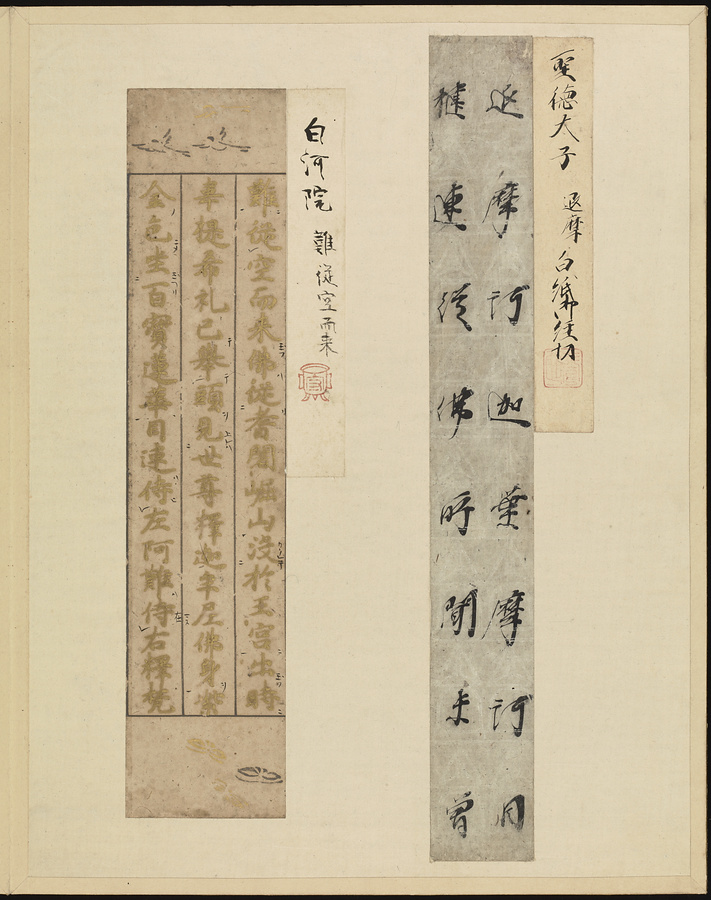 聖徳太子 延摩 白紙経切
延摩訶迦葉摩訶目
揵連從佛所聞未曾
白河院 難從空而来
難從空而来佛從耆闍崛山没於王宮出時
韋提希礼已擧頭見世尊釋迦牟尼佛身紫
金色坐百寳蓮華目連侍左阿難侍右釋梵